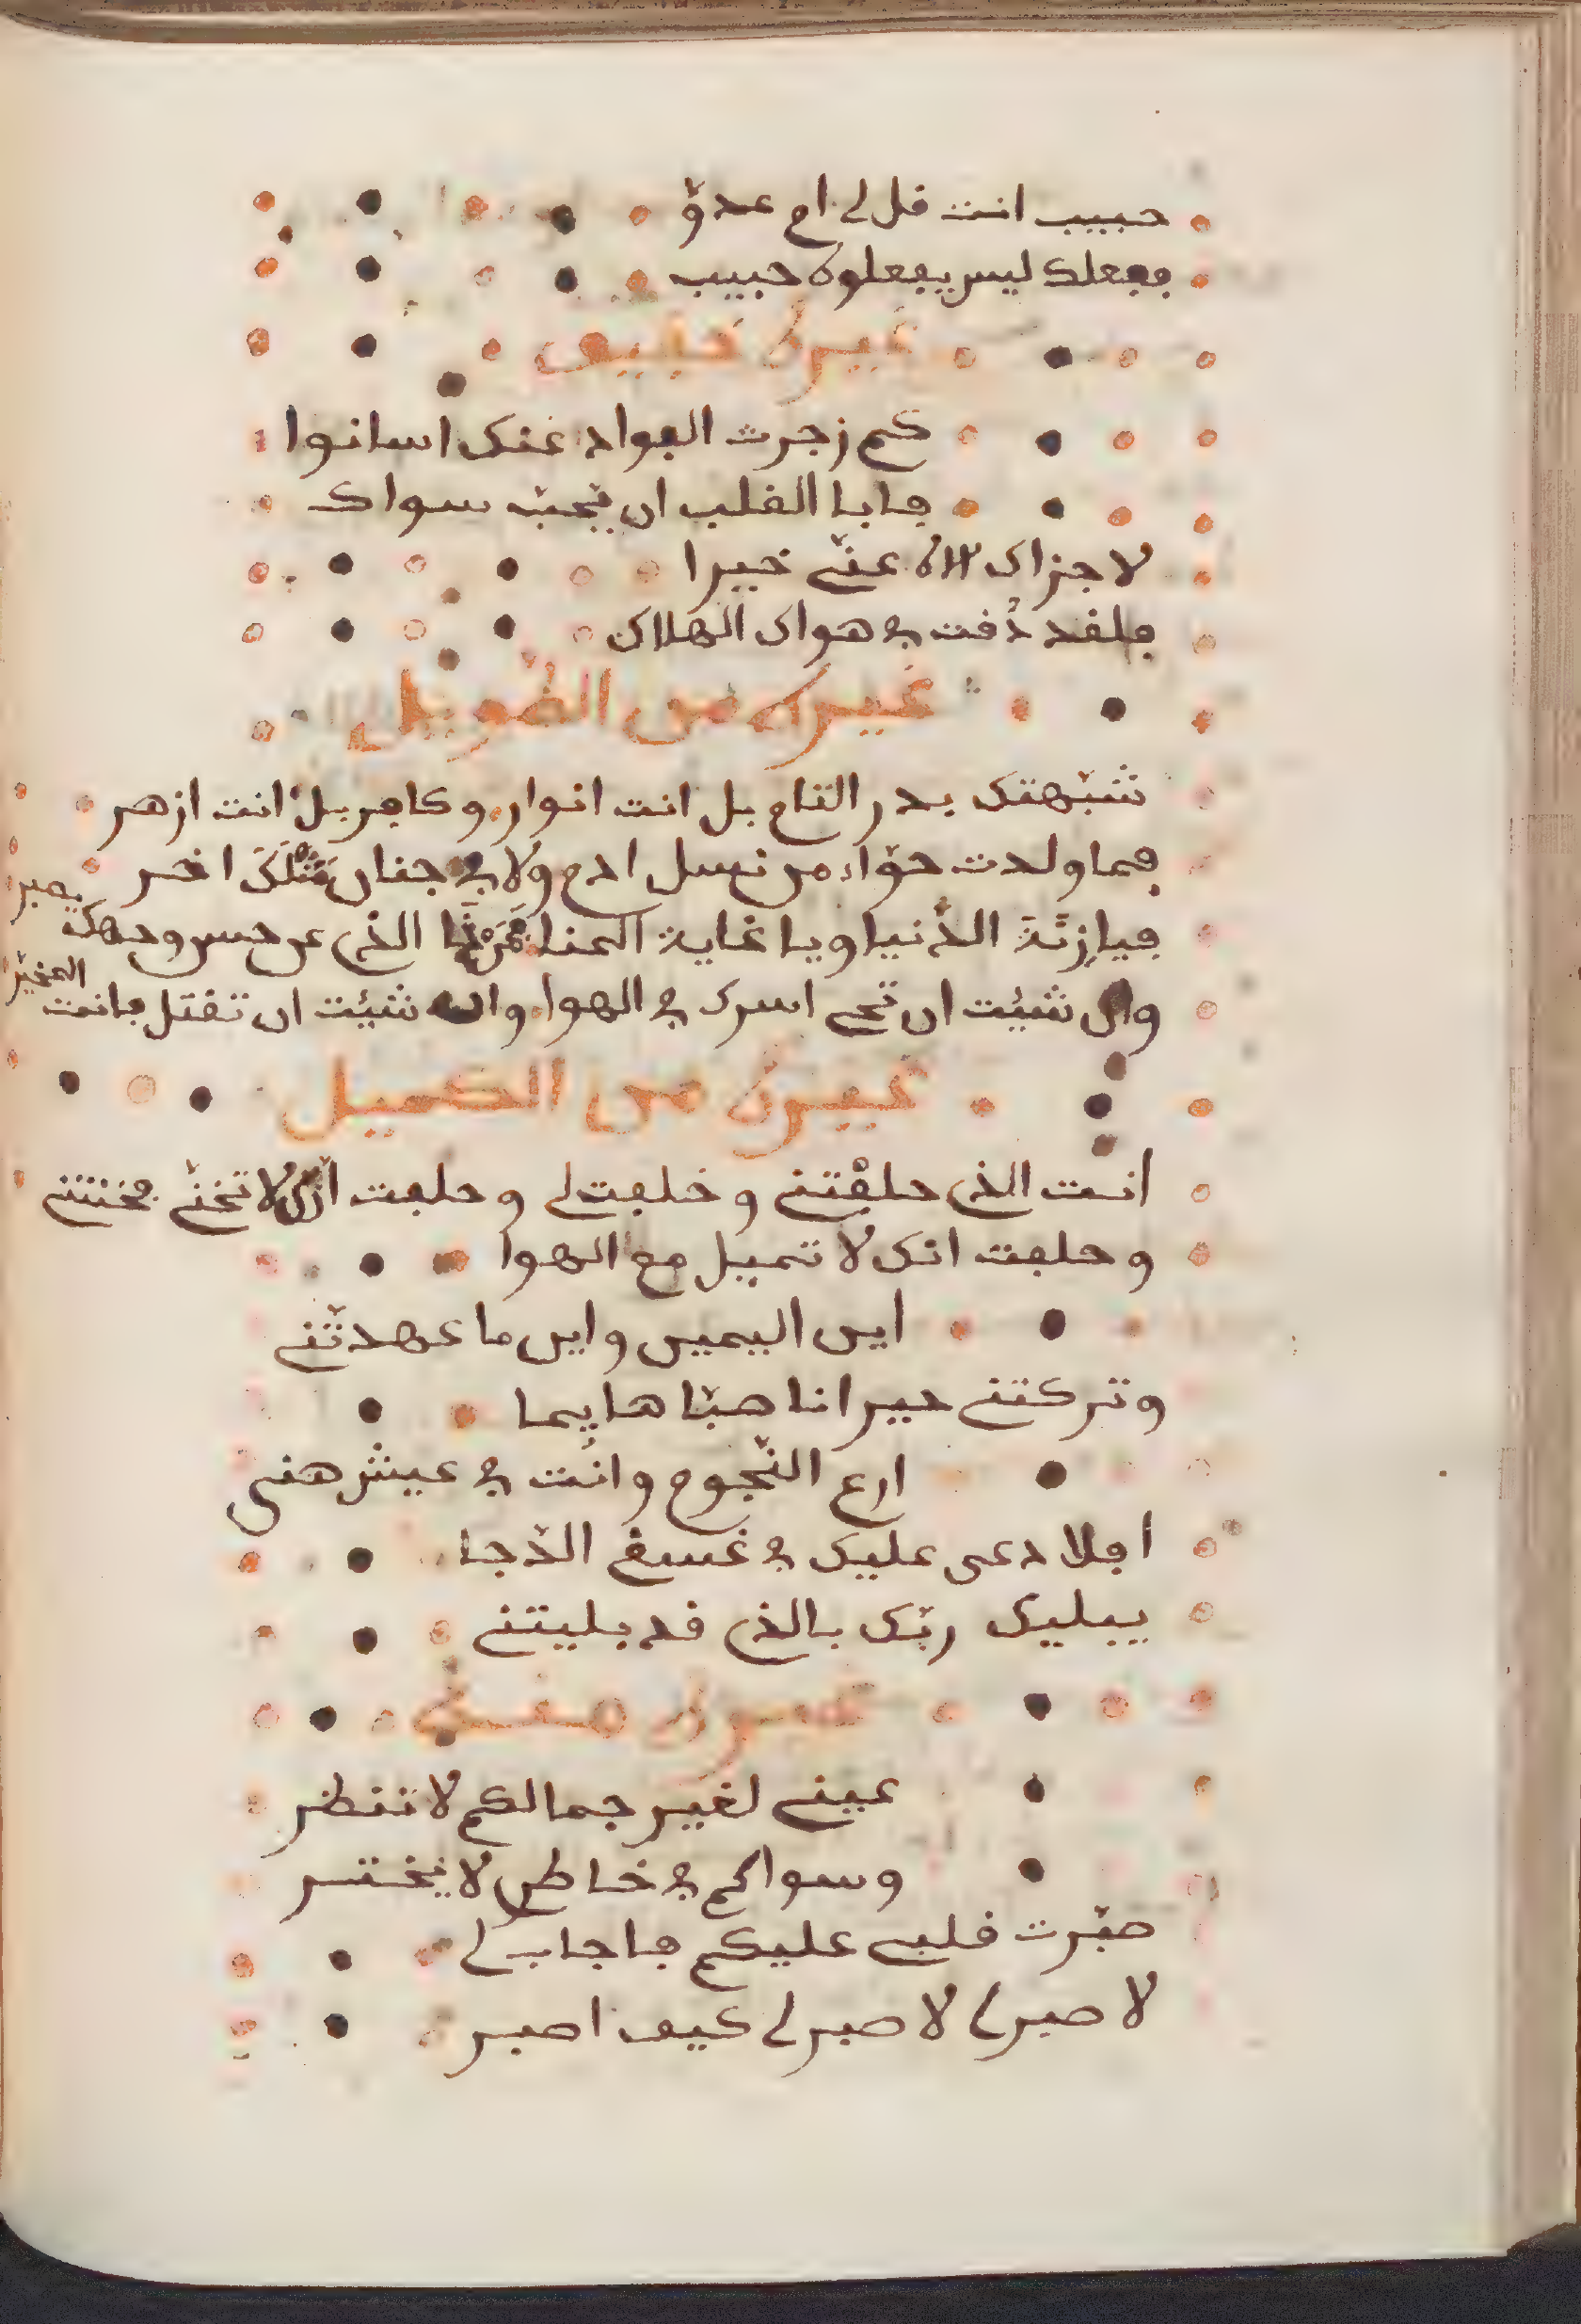 حبيب انت قل لي ام عدوّ
ففعلك ليس يفعلوه حبيب
غيره خفيف
كم زجرت الفواد عنك اسانوا
فابا القلب ان يحبّ سواك
لا جزاك الاه عنّي خيرا
فلقد ذقت في هواك الهلاك
غيره من الطويل
شبّهتك بدر التام بل انت انوار وكافر بل انت ازهر
فما ولدت حوّاء من نسل ادم ولا في جنان مثلك اخر
فيا زنة الدّنيا ويا غاية المنا فمن ذا الذي عن حسن وجهك يصبر
وان شيئت ان تحي اسرك في الهوا وان شيئت ان تقتل فانت المخيّر
غيره من الكميل
انت الذي حلفتني وخلفت لي وحلفت انّك لا تخنّي فخنتني
وحلفت انك لا تميل مع الهوا
اين اليمين واين ما عهدتّني
وتركتني حيرانا صبّا هايما
ارع النّجوم وانت في عيش هني
افلا دعى عليك في غسق الدّجا
يبليك ربّك بالذي قد بليتني
عيني لغير جمالكم لا تنظر
وسواكم في خاطر لا يختر
صبّرت قلبي عليكم فاجاب لي
لا صبر لي لا صبر لي كيف اصبر